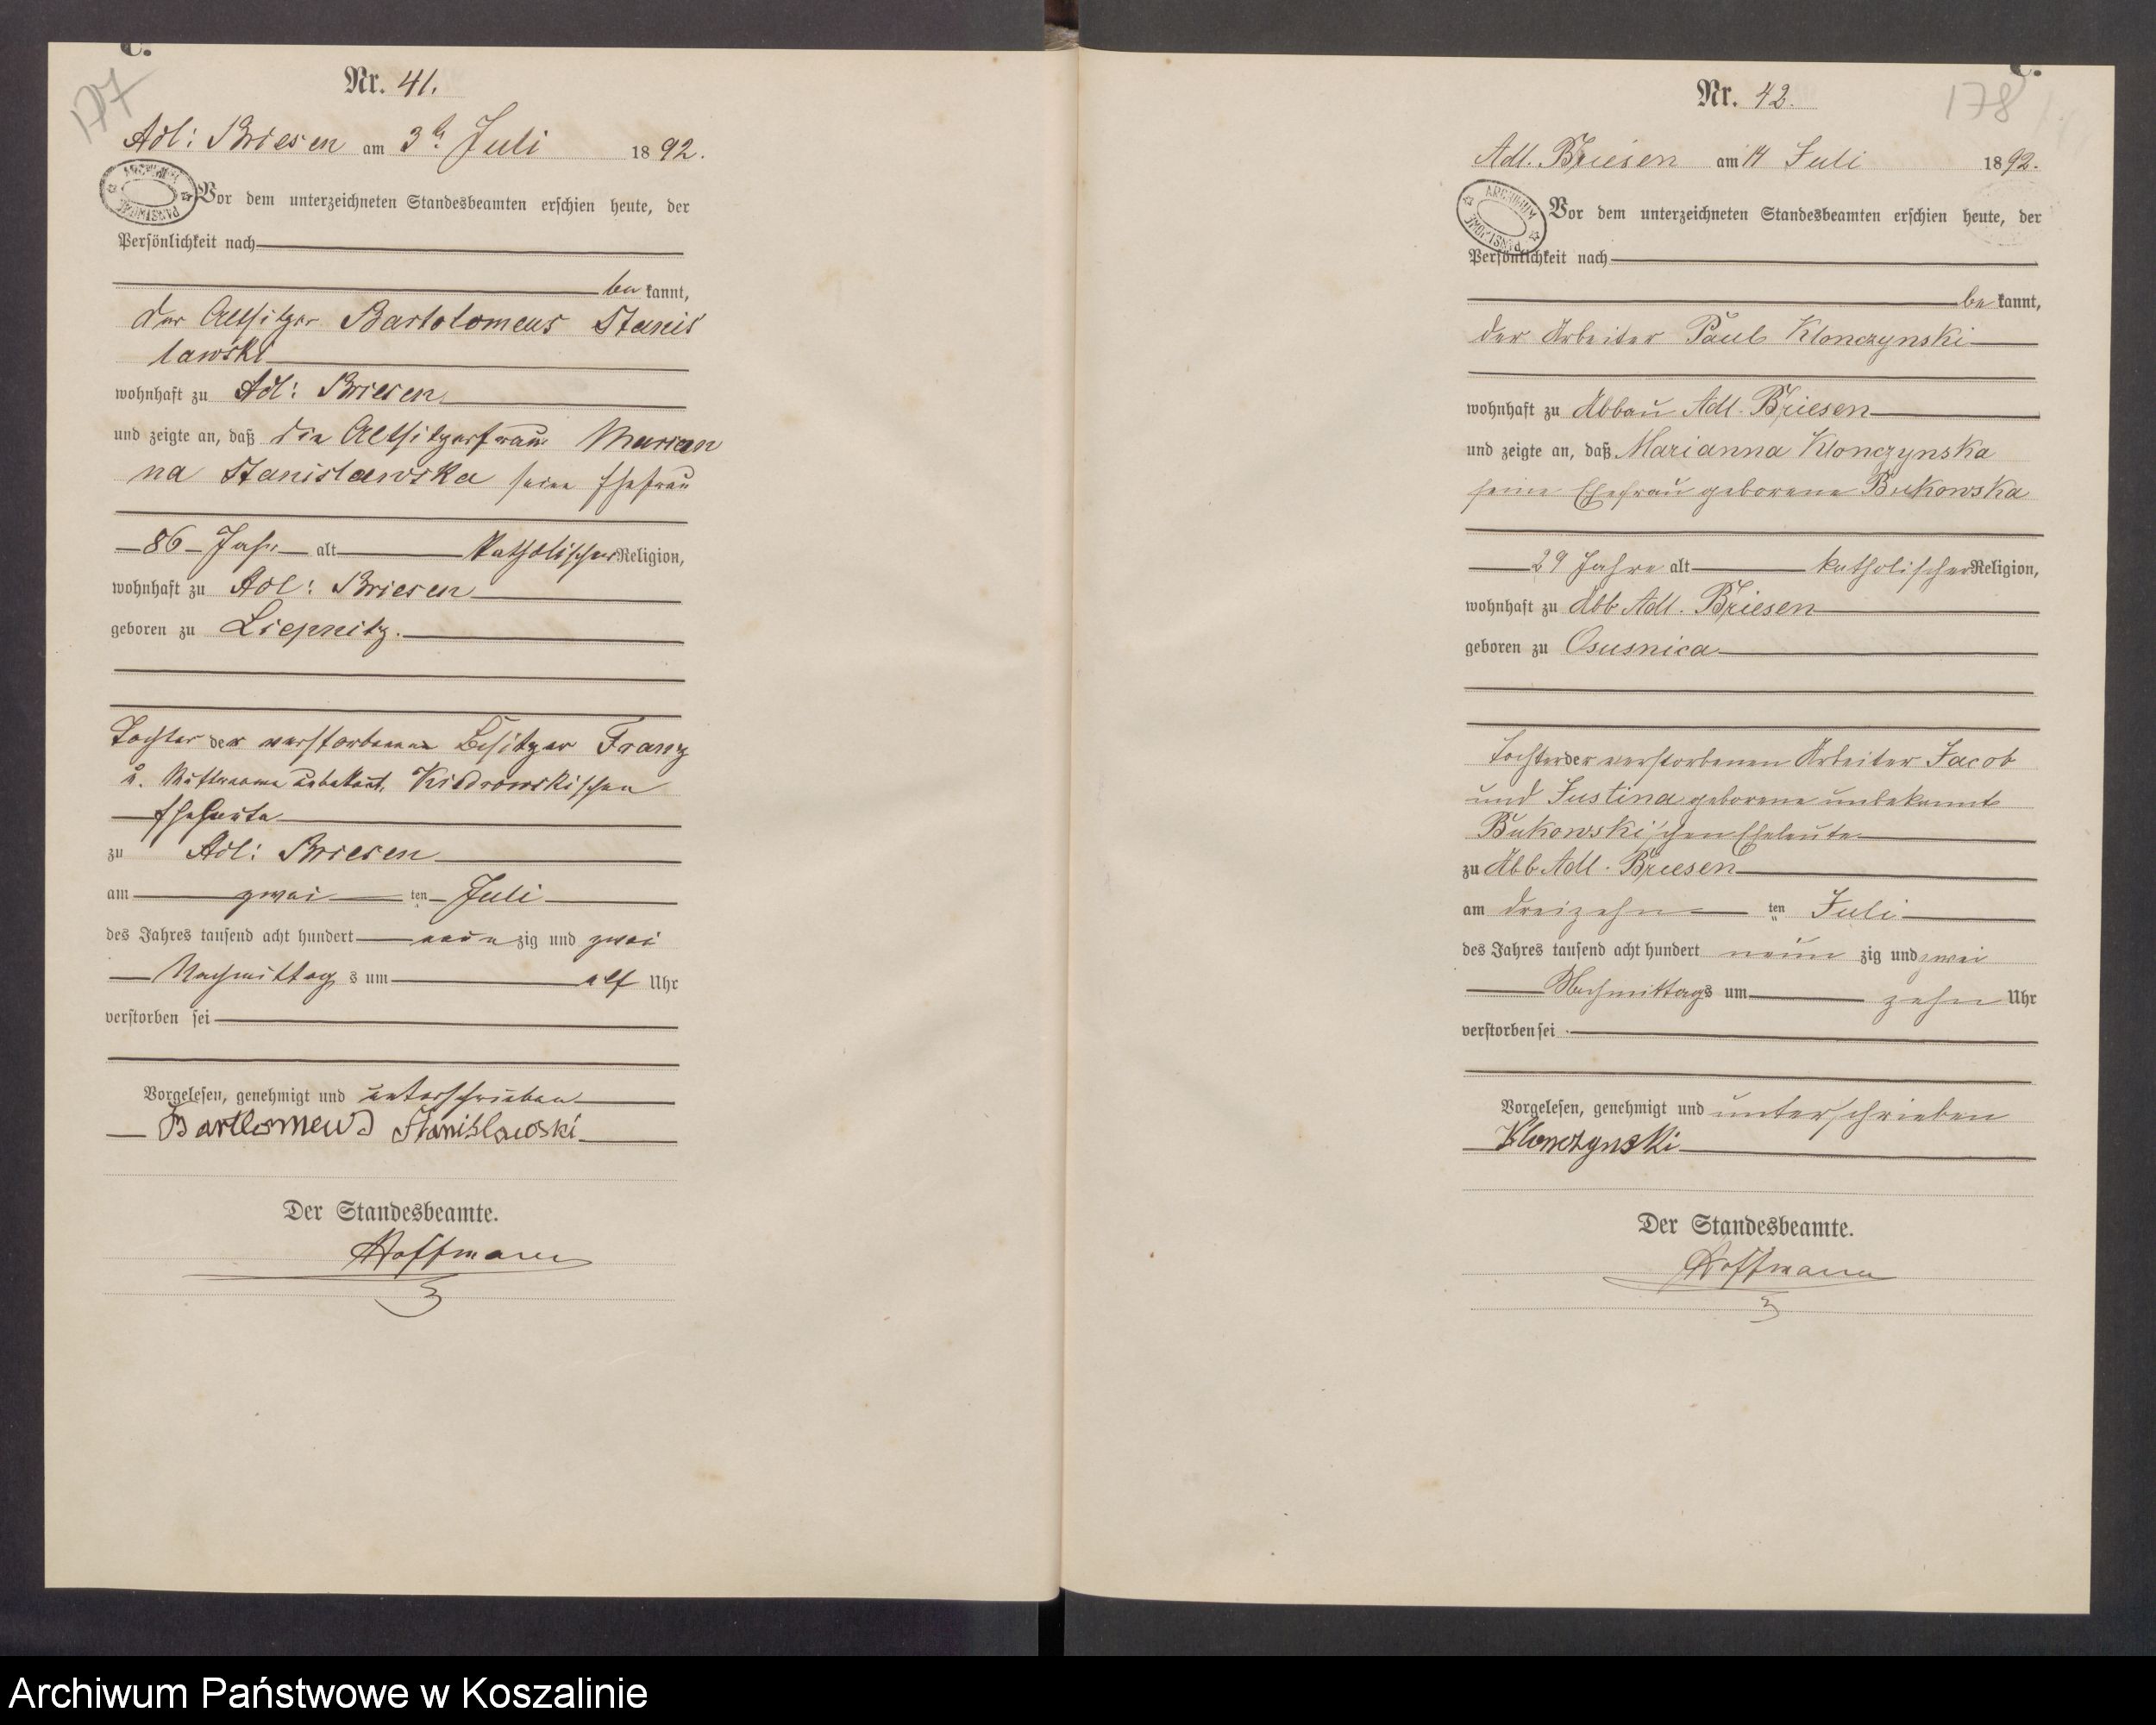 C.
177
Nr. 41.
Adl: Briesen am 3t. Juli 1892.
ARCHIWUM PAŃSTWOWE
Vor dem unterzeichneten Standesbeamten erschien heute, der
Persönlichkeit nach
be kannt,
der Altsitzer Bartolomeus Stanis
lawski
wohnhaft zu Adl: Briesen
und zeigte an, daß die Altsitzerfrau Marian
na Stanislawska seine Ehefrau
86 Jahr alt katholischer Religion,
wohnhaft zu Adl: Briesen
geboren zu Liepnitz.
Tochter der verstorbenen Besitzer Franz
u. Muttername unbekant, Kiedrowskischen
Eheleute
zu Adl: Briesen
am zwei ten Juli
des Jahres tausend acht hundert neun zig und zwei
Nachmittag s um elf Uhr
verstorben sei
Vorgelesen, genehmigt und unterschrieben
Bartlomeus Stanislawski
Der Standesbeamte.
Hoffmann
C.
178
Nr. 42.
Adl. Briesen am 14 Juli 1892.
ARCHIWUM PAŃSTWOWE
Vor dem unterzeichneten Standesbeamten erschien heute, der
Persönlichkeit nach
be kannt,
der Arbeiter Paul Klonczynski
wohnhaft zu Abbau Adl. Briesen
und zeigte an, daß Marianna Klonczynska
seine Ehefrau geborene Bukowska
29 Jahre alt katholischer Religion,
wohnhaft zu Abb Adl. Briesen
geboren zu Osusnica
Tochter der verstorbenen Arbeiter Jacob
und Justina geborene unbekannt
Bukowski'schen Eheleute
zu Abb Adl. Briesen
am dreizehn ten Juli
des Jahres tausend acht hundert neun zig und zwei
Nachmittags um zehn Uhr
verstorben sei
Vorgelesen, genehmigt und unterschrieben
Klonczynski
Der Standesbeamte.
Hoffmann
Archiwum Państwowe w Koszalinie